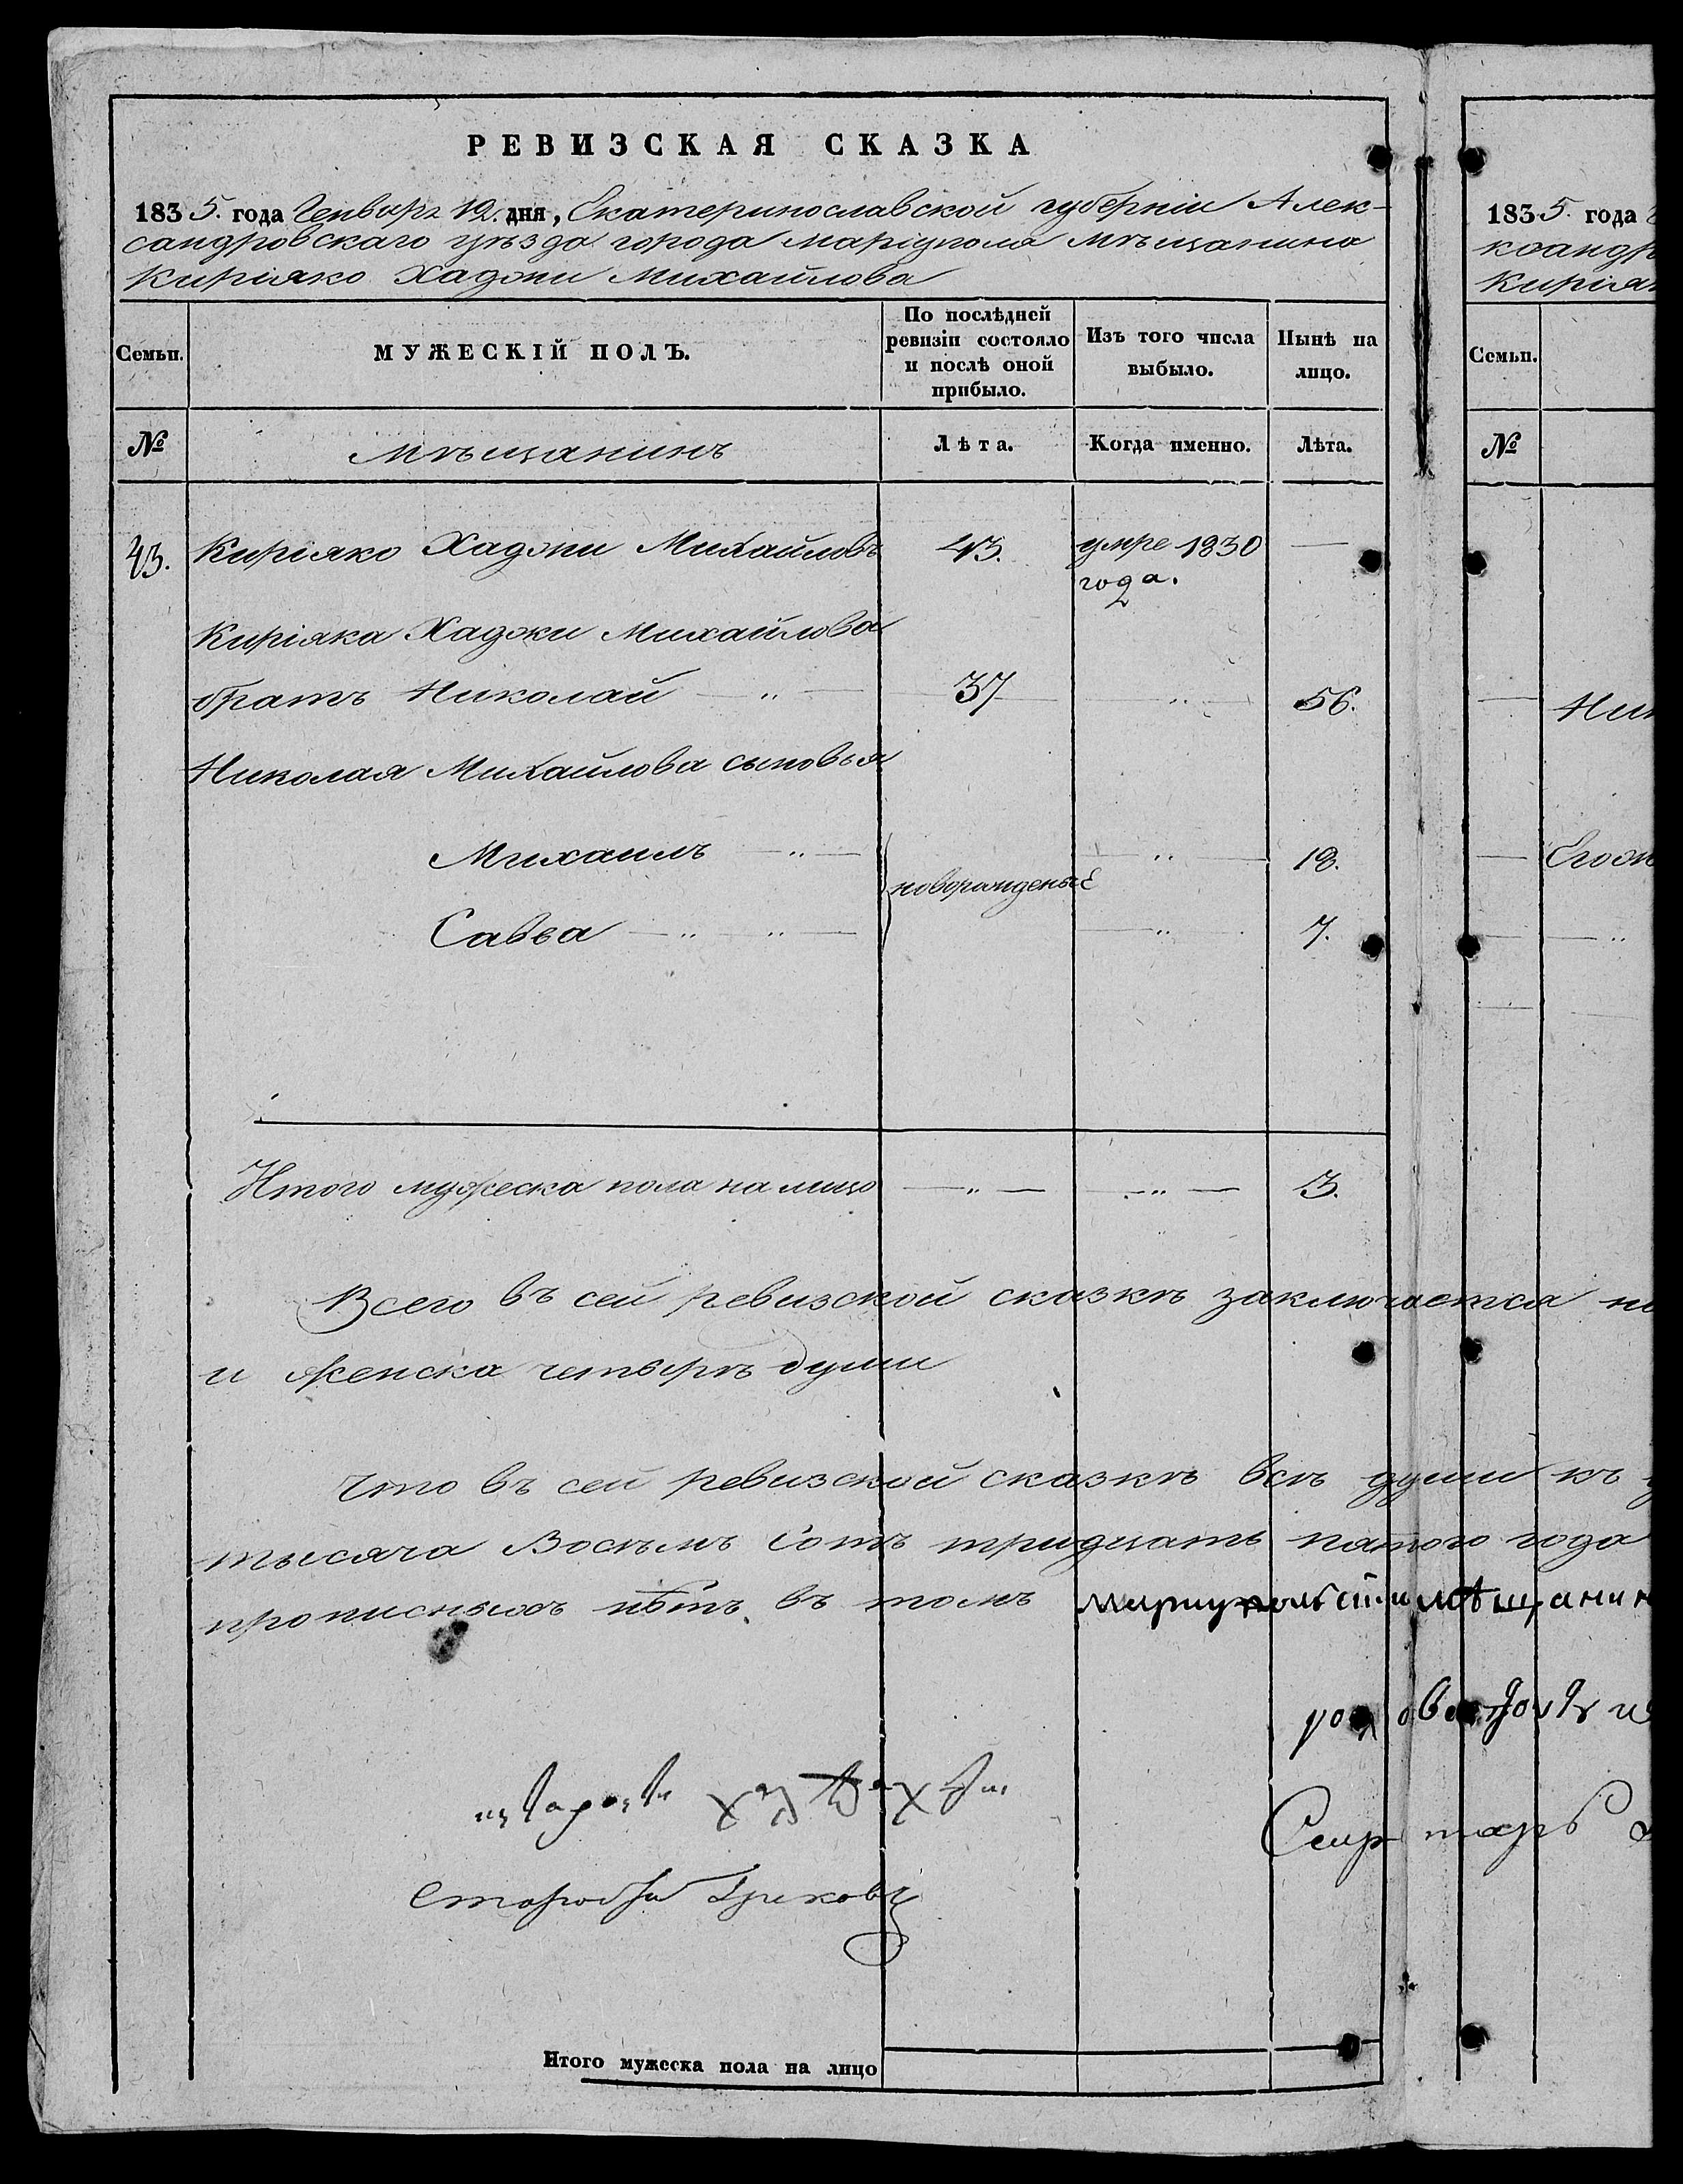 РЕВИЗСКАЯ СКАЗКА
1835. года Генваря 12. дня, Екатеринославской губерніи Алек-
сандровскаго уѣзда города Маріуполя мѣщанина
Киріяко Хаджи Михайлова
Семьи.
МУЖЕСКІЙ ПОЛЪ.
По послѣдней ревизіи состояло и послѣ оной прибыло.
Изъ того числа выбыло.
Нынѣ на лицо.
№
мѣщанинъ
Лѣта.
Когда именно.
Лѣта.
43. Киріяко Хаджи Михайловъ 43. умре 1830 —
года.
Киріяка Хаджи Михайлова
братъ Николай — „ — 37 — „ — 56.
Николая Михайлова сыновья
Михаилъ — „ — — „ — 18.
новорожденые
Савва — „ — „ — — „ — 7.
Итого мужеска пола на лицо — „ — — „ — 3.
Всего въ сей ревизской сказкѣ заключается
и женска четырѣ души
Что въ сей ревизской сказкѣ всѣ души къ
тысяча Восѣмъ Сотъ тридцать пятого года
прописныхъ нѣтъ. въ томъ мариупольский мѣщанин
Староста Грековъ
Итого мужеска пола на лицо
1835. года
ксандр
Кирія
Семьи.
№
— Ник
— Егож
— — „